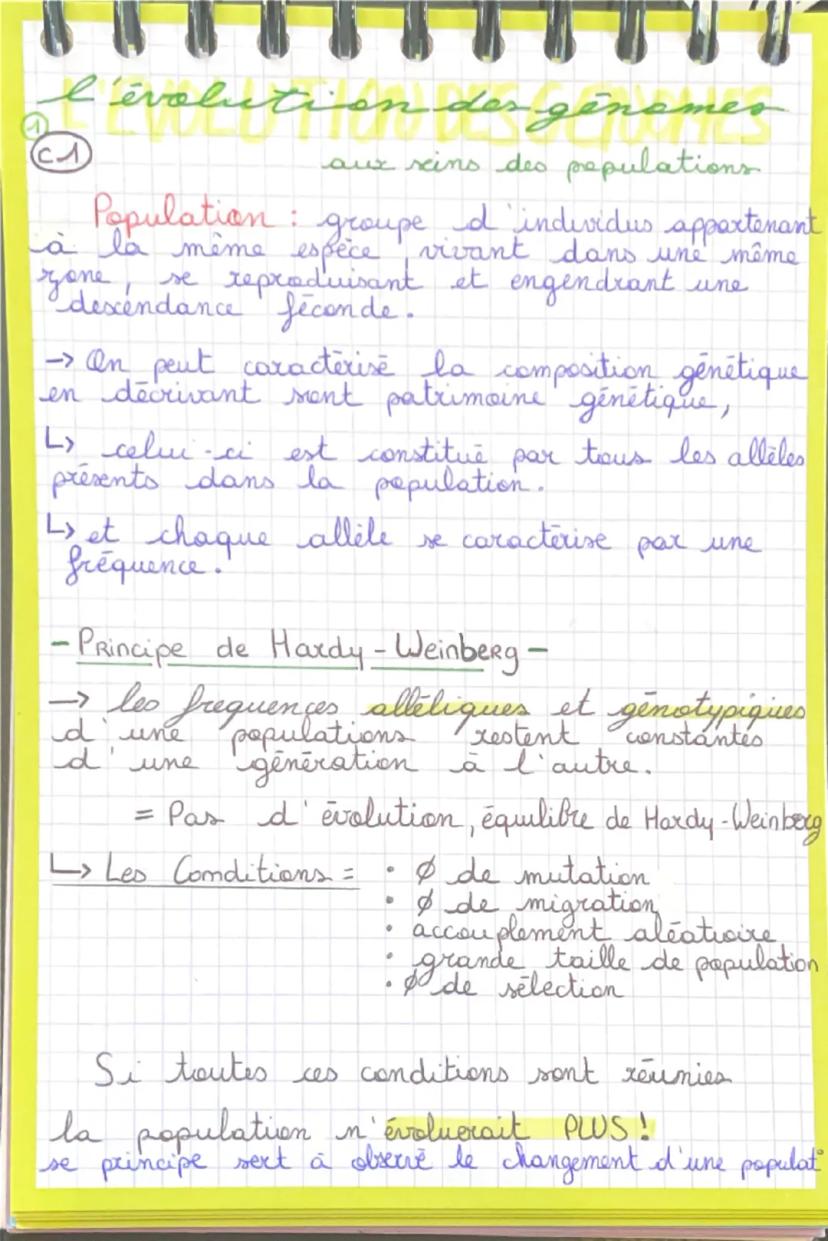 L'ÉVOLUTION DES GÉNOMES
l'évolution des génomes
①
C.1
aux seins des populations
Population : groupe d'individus appartenant
à la même espèce, vivant dans une même
zone, se reproduisant et engendrant une
descendance féconde.
→ On peut caractérisé la composition génétique
en décrivant sont patrimoine génétique,
↳ celui-ci est constitué par tous les allèles
présents dans la population.
↳ et chaque allèle se caractérise par une
fréquence.
- Principe de Hardy-Weinberg -
→ les frequences alléliques et génotypiques
d'une populations restent constantes
d'une génération à l'autre.
= Pas d'évolution, équilibre de Hardy-Weinberg
↳ Les Conditions = • ∅ de mutation
• ∅ de migration
• accouplement aléatioire
• grande taille de population
• ∅ de sélection
Si toutes ces conditions sont réunies
la population n'évoluerait PLUS !
se principe sert à observé le changement d'une populat°